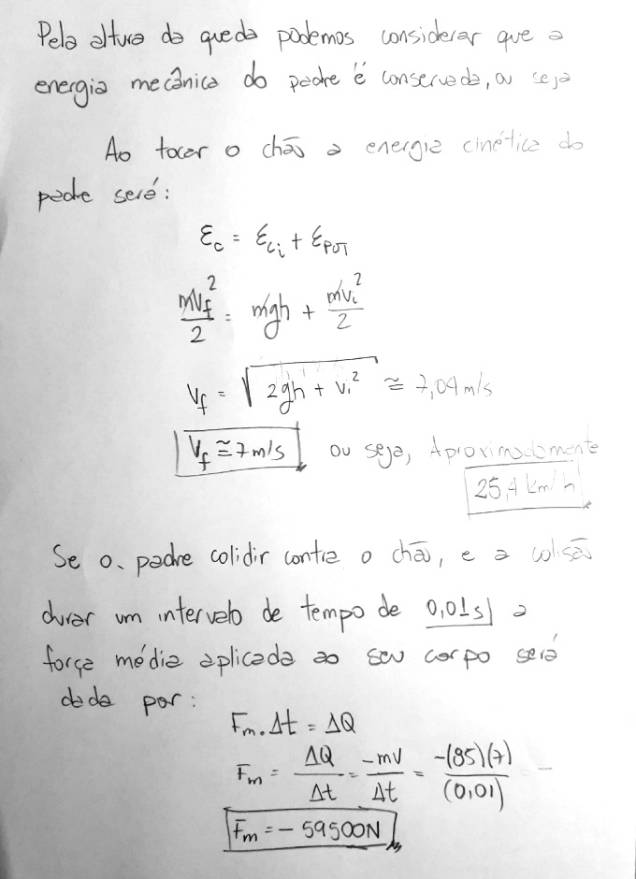 Pela altura da queda podemos considerar que a
energia mecânica do padre é conservada, ou seja
Ao tocar o chão a energia cinética do
padre será:
Ec = Eci + EPOT
mVf²/2 = mgh + mvi²/2
Vf = √(2gh + vi²) ≅ 7,04 m/s
Vf ≅ 7 m/s ou seja, Aproximadamente
25,4 km/h
Se o padre colidir contra o chão, e a colisão
durar um intervalo de tempo de 0,01s a
força média aplicada ao seu corpo será
dada por:
Fm.Δt = ΔQ
Fm = ΔQ/Δt = -mV/Δt = -(85)(7)/(0,01)
Fm = - 59500N